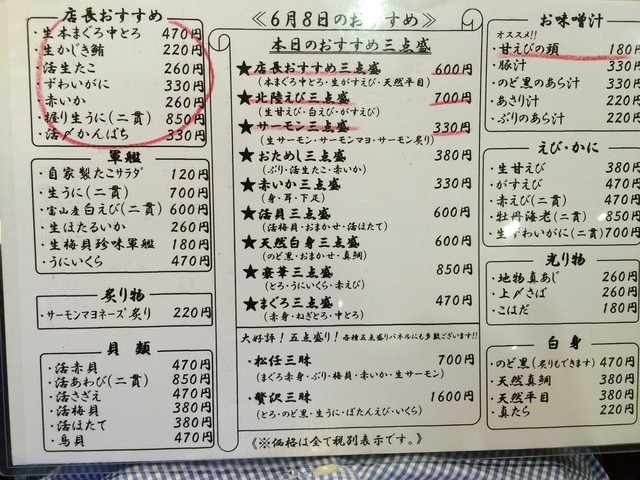 店長おすすめ
・生本まぐろ中とろ 470円
・生かじき鮪 220円
・活生たこ 260円
・ずわいがに 330円
・赤いか 260円
・握り生うに(二貫) 850円
・活〆かんぱち 330円
軍艦
・自家製たこサラダ 120円
・生うに(二貫) 700円
・富山産白えび(二貫) 600円
・生ほたるいか 260円
・生梅貝珍味軍艦 180円
・うにいくら 470円
炙り物
・サーモンマヨネーズ炙り 220円
貝類
・活赤貝 470円
・活あわび(二貫) 850円
・活さざえ 470円
・活梅貝 380円
・活ほたて 380円
・鳥貝 470円
≪6月8日のおすすめ≫
本日のおすすめ三点盛
★店長おすすめ三点盛 600円
(本まぐろ中とろ・生がすえび・天然平目)
★北陸えび三点盛 700円
(生甘えび・白えび・がすえび)
★サーモン三点盛 330円
(生サーモン・サーモンマヨ・サーモン炙り)
★おためし三点盛 380円
(ぶり・活生たこ・赤いか)
★赤いか三点盛 330円
(身・耳・下足)
★活貝三点盛 600円
(活梅貝・おまかせ・活ほたて)
★天然白身三点盛 600円
(のど黒・おまかせ・真鯛)
★豪華三点盛 850円
(とろ・うにいくら・赤えび)
★まぐろ三点盛 470円
(赤身・ねぎとろ・中とろ)
大好評!五点盛り!各種五点盛りパネルにも多数ございます!!
・松任三昧 700円
(まぐろ赤身・ぶり・梅貝・赤いか・生サーモン)
・贅沢三昧 1600円
(とろ・のど黒・生うに・ぼたんえび・いくら)
《※価格は全て税別表示です。》
お味噌汁
オススメ!!
・甘えびの頭 180円
・豚汁 330円
・のど黒のあら汁 330円
・あさり汁 220円
・ぶりのあら汁 220円
えび・かに
・生甘えび 380円
・がすえび 470円
・赤えび(二貫) 470円
・牡丹海老(二貫) 850円
・生ずわいがに(二貫) 700円
光り物
・地物真あじ 260円
・上〆さば 260円
・こはだ 180円
白身
・のど黒(炙りもできます) 470円
・天然真鯛 380円
・天然平目 380円
・真たら 220円